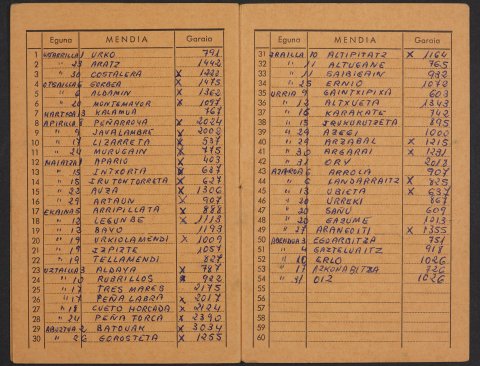 Eguna MENDIA Garaia
1 URTARRILLA 1 URKO 791
2 " 23 ARATZ 1442
3 " 30 COSTALERA X 1222
4 OTSAILLA 6 GORBEA X 1475
5 " 6 ALDAMIN X 1362
6 " 20 MONTEMAYOR X 1097
7 MARTXOA 13 KALAMUA 767
8 APIRILLA 3 PEÑARROYA X 2024
9 " 9 JAVALAMBRE X 2002
10 " 17 LIZARRETA X 537
11 " 24 MURUGAIN X 775
12 MAIATZA 1 APARIO X 403
13 " 15 INTXORTA X 637
14 " 15 IRUTONTORRETA X 627
15 " 22 AUZA X 1306
16 " 29 ARTAUN X 907
17 EKAINA 5 ARRIPILLATA X 888
18 " 12 LEGUNBE X 1113
19 " 12 BAYO 1193
20 " 19 URKIOLAMENDI X 1009
21 " 19 IZPIZTE 1051
22 " 19 TELLAMENDI 827
23 UZTAILLA 3 ALDAYA X 787
24 " 10 RUBRILLOS X 922
25 " 17 TRES MARES 2175
26 " 17 PEÑA LABRA X 2017
27 " 18 CUETO HORCADA X 2124
28 " 24 PEÑA TORCA X 2390
29 ABUZTUA 2 BATOUAK X 3034
30 " 26 GOROSTETA X 1255
Eguna MENDIA Garaia
31 IRAILLA 10 ALTIPITATZ X 1164
32 " 11 ALTUGANE X 765
33 " 11 SAIBIGAIN X 932
34 " 25 ERNIO 1072
35 URRIA 9 GAINTXIPIXA X 603
36 " 12 ALTXUETA X 1343
37 " 16 KARAKATE X 742
38 " 15 IRUKURUTZETA X 895
39 " 29 AZEGI X 1000
40 " 29 ARZABAL X 1215
41 " 30 ARGARAI X 1291
42 " 31 ORY X 2018
43 AZAROA 6 ARROLA X 907
44 " 6 LANDARRAITZ X 825
45 " 13 UBIETA X 637
46 " 20 URREKI X 867
47 " 20 SAÑU 609
48 " 20 GAZUME 1013
49 " 27 ARANGOITI X 1355
50 ABENDUA 3 EGOARBITZA 751
51 " 4 GAZTELUAITZ 918
52 " 10 ERLO 1026
53 " 17 AZKONABITZA 726
54 " 31 OIZ 1026
55
56
57
58
59
60